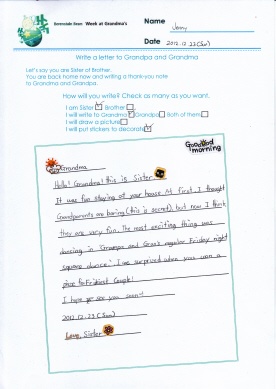 Berenstain Bears Week at Grandma's
Name Jenny
Date 2012.12.23(Sun)
Write a letter to Grandpa and Grandma
Let's say you are Sister or Brother.
You are back home now and writing a thank-you note
to Grandma and Grandpa.
How will you write? Check as many as you want.
I am Sister Brother
I will write to Grandma Grandpa Both of them
I will draw a picture
I will put stickers to decorate
Good morning
Grandma
Hello! Grandma! this is Sister
It was fun staying at your house. At first, I thought
Grandparents are boring (this is secret), but now I think
they are very fun. The most exciting thing was
dancing in 'Grampa and Gran's regular Friday night
square dance'. I was surprised when you won a
prize for Friskiest Couple!
I hope see you soon!!
2012.12.23 (Sun)
Love, Sister